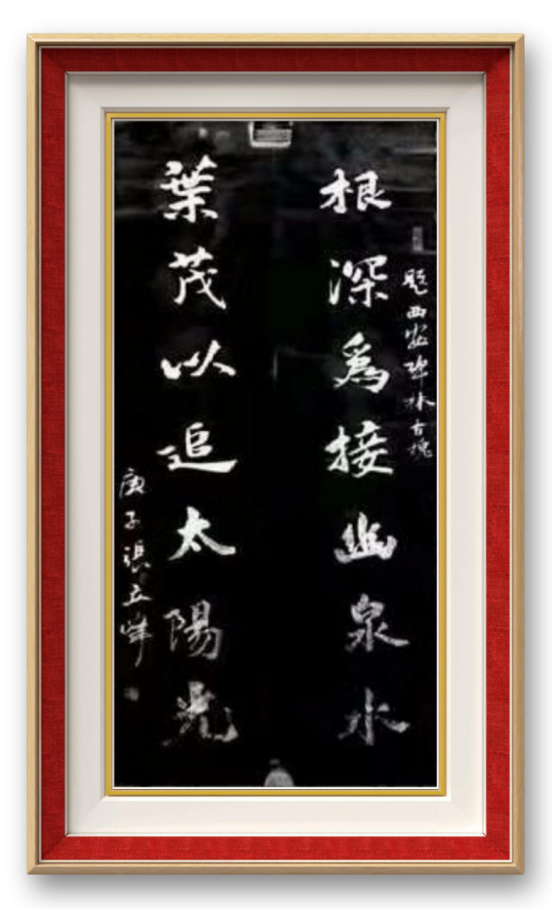 題西安碑林古槐
根深爲接幽泉水
葉茂以追太陽光
庚子張立峰